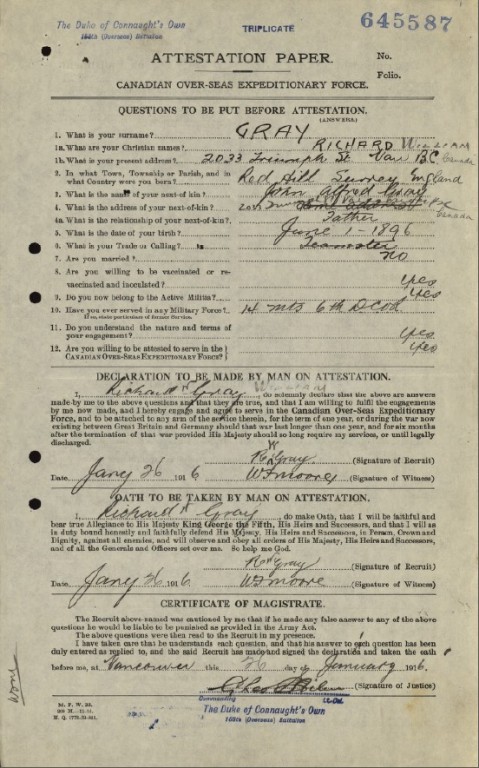 The Duke of Connaught's Own
158th (Overseas) Battalion
TRIPLICATE
645587
ATTESTATION PAPER.
No.
Folio.
CANADIAN OVER-SEAS EXPEDITIONARY FORCE.
QUESTIONS TO BE PUT BEFORE ATTESTATION.
(ANSWERS)
1. What is your surname? GRAY
1a. What are your Christian names? RICHARD WILLIAM
1b. What is your present address? 2033 Triumph St Van BC Canada
2. In what Town, Township or Parish, and in what Country were you born? Red Hill Surrey England
3. What is the name of your next-of-kin? John Alfred Gray
4. What is the address of your next-of-kin? 2033 BC Canada
4a. What is the relationship of your next-of-kin? Father
5. What is the date of your birth? June 1-1896
6. What is your Trade or Calling? Teamster
7. Are you married? no
8. Are you willing to be vaccinated or re-vaccinated and inoculated? yes
9. Do you now belong to the Active Militia? yes
10. Have you ever served in any Military Force? 14 mts 6th DCOR
If so, state particulars of former Service.
11. Do you understand the nature and terms of your engagement? yes
12. Are you willing to be attested to serve in the CANADIAN OVER-SEAS EXPEDITIONARY FORCE? yes
DECLARATION TO BE MADE BY MAN ON ATTESTATION.
I, Richard W Gray William, do solemnly declare that the above are answers
made by me to the above questions and that they are true, and that I am willing to fulfil the engagements
by me now made, and I hereby engage and agree to serve in the Canadian Over-Seas Expeditionary
Force, and to be attached to any arm of the service therein, for the term of one year, or during the war now
existing between Great Britain and Germany should that war last longer than one year, and for six months
after the termination of that war provided His Majesty should so long require my services, or until legally
discharged.
R W Gray (Signature of Recruit)
Date Jany 26 1916 W F Moore (Signature of Witness)
OATH TO BE TAKEN BY MAN ON ATTESTATION.
I, Richard W Gray, do make Oath, that I will be faithful and
bear true Allegiance to His Majesty King George the Fifth, His Heirs and Successors, and that I will as
in duty bound honestly and faithfully defend His Majesty, His Heirs and Successors, in Person, Crown and
Dignity, against all enemies, and will observe and obey all orders of His Majesty, His Heirs and Successors,
and of all the Generals and Officers set over me. So help me God.
R W Gray (Signature of Recruit)
Date Jany 26 1916 W F Moore (Signature of Witness)
CERTIFICATE OF MAGISTRATE.
The Recruit above named was cautioned by me that if he made any false answer to any of the above
questions he would be liable to be punished as provided in the Army Act.
The above questions were then read to the Recruit in my presence.
I have taken care that he understands each question, and that his answer to each question has been
duly entered as replied to, and the said Recruit has made and signed the declaration and taken the oath
before me, at Vancouver this 26 day of January 1916.
(Signature of Justice)
Commanding
The Duke of Connaught's Own
158th (Overseas) Battalion
M. F. W. 23.